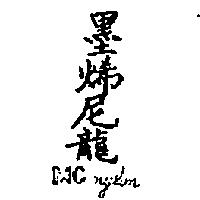 墨烯尼龍
nylon